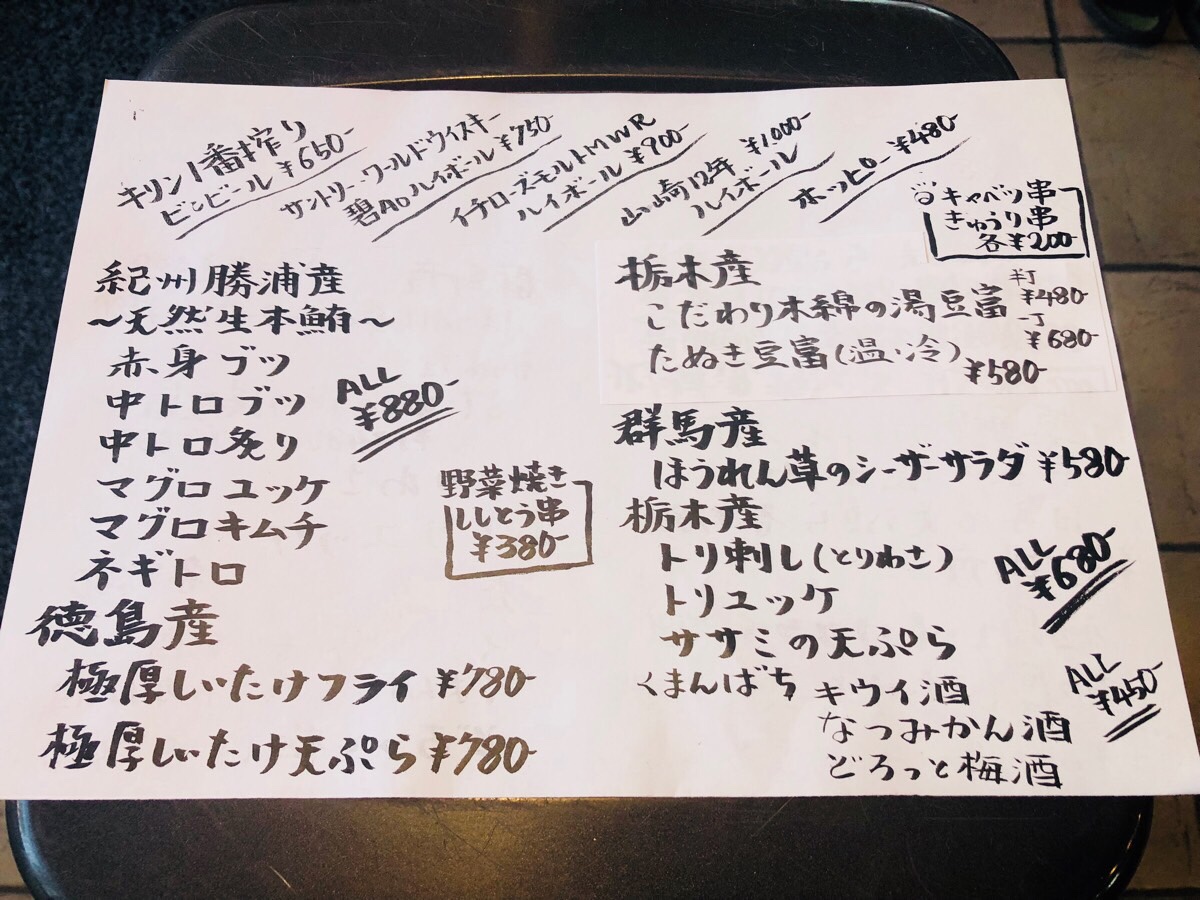 キリン1番搾り
ビンビール ¥650-
サントリーワールドウイスキー
碧Aoハイボール ¥750-
イチローズモルトMWR
ハイボール ¥900-
山崎12年 ¥1.000-
ハイボール
ホッピー ¥480-
キャベツ串
きゅうり串
各¥200-
紀州勝浦産
〜天然生本鮪〜
赤身ブツ
中トロブツ
中トロ炙り
マグロユッケ
マグロキムチ
ネギトロ
ALL
¥880-
野菜焼き
ししとう串
¥380-
徳島産
極厚しいたけフライ ¥780-
極厚しいたけ天ぷら ¥780-
栃木産
こだわり木綿の湯豆富
半丁
¥480-
一丁
¥680-
たぬき豆富(温・冷)
¥580-
群馬産
ほうれん草のシーザーサラダ ¥580-
栃木産
トリ刺し(とりわさ)
トリユッケ
ササミの天ぷら
ALL
¥680-
くまんばち キウイ酒
なつみかん酒
どろっと梅酒
ALL
¥450-